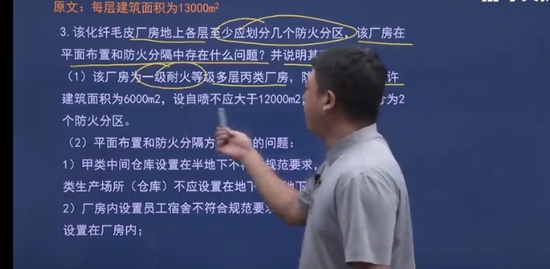 原文：每层建筑面积为13000m²
3. 该化纤毛皮厂房地上各层至少应划分几个防火分区，该厂房在
平面布置和防火分隔中存在什么问题？并说明其
（1）该厂房为一级耐火等级多层丙类厂房，防
许
建筑面积为6000m2，设自喷不应大于12000m2，
分为2
个防火分区。
（2）平面布置和防火分隔方
的问题：
1）甲类中间仓库设置在半地下不符
规范要求，
类生产场所（仓库）不应设置在地下
地下
2）厂房内设置员工宿舍不符合规范要求
设置在厂房内；